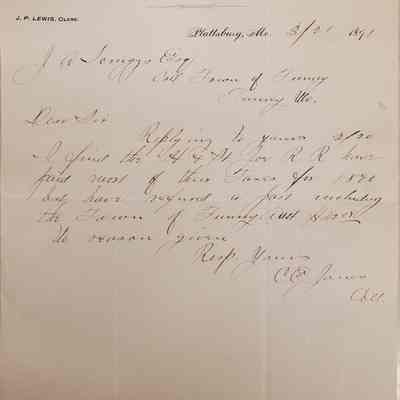 J. P. LEWIS, CLERK.
Plattsburg, Mo. 3/21 1891
J A Scruggs Esq
Coll Town of Turney
Turney Mo.
Dear Sir
Replying to yours 3/20
I find the H & St Joe R R have
paid most of their Taxes for 1890
but have refused a part including
the Town of Turney
No reason given
Resp Yours
C E Jones
Coll.